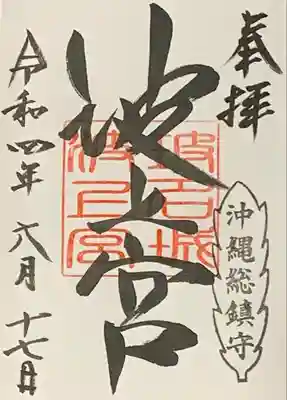 奉拝
沖縄総鎮守
波上宮
波上宮
令和四年 六月 十七日